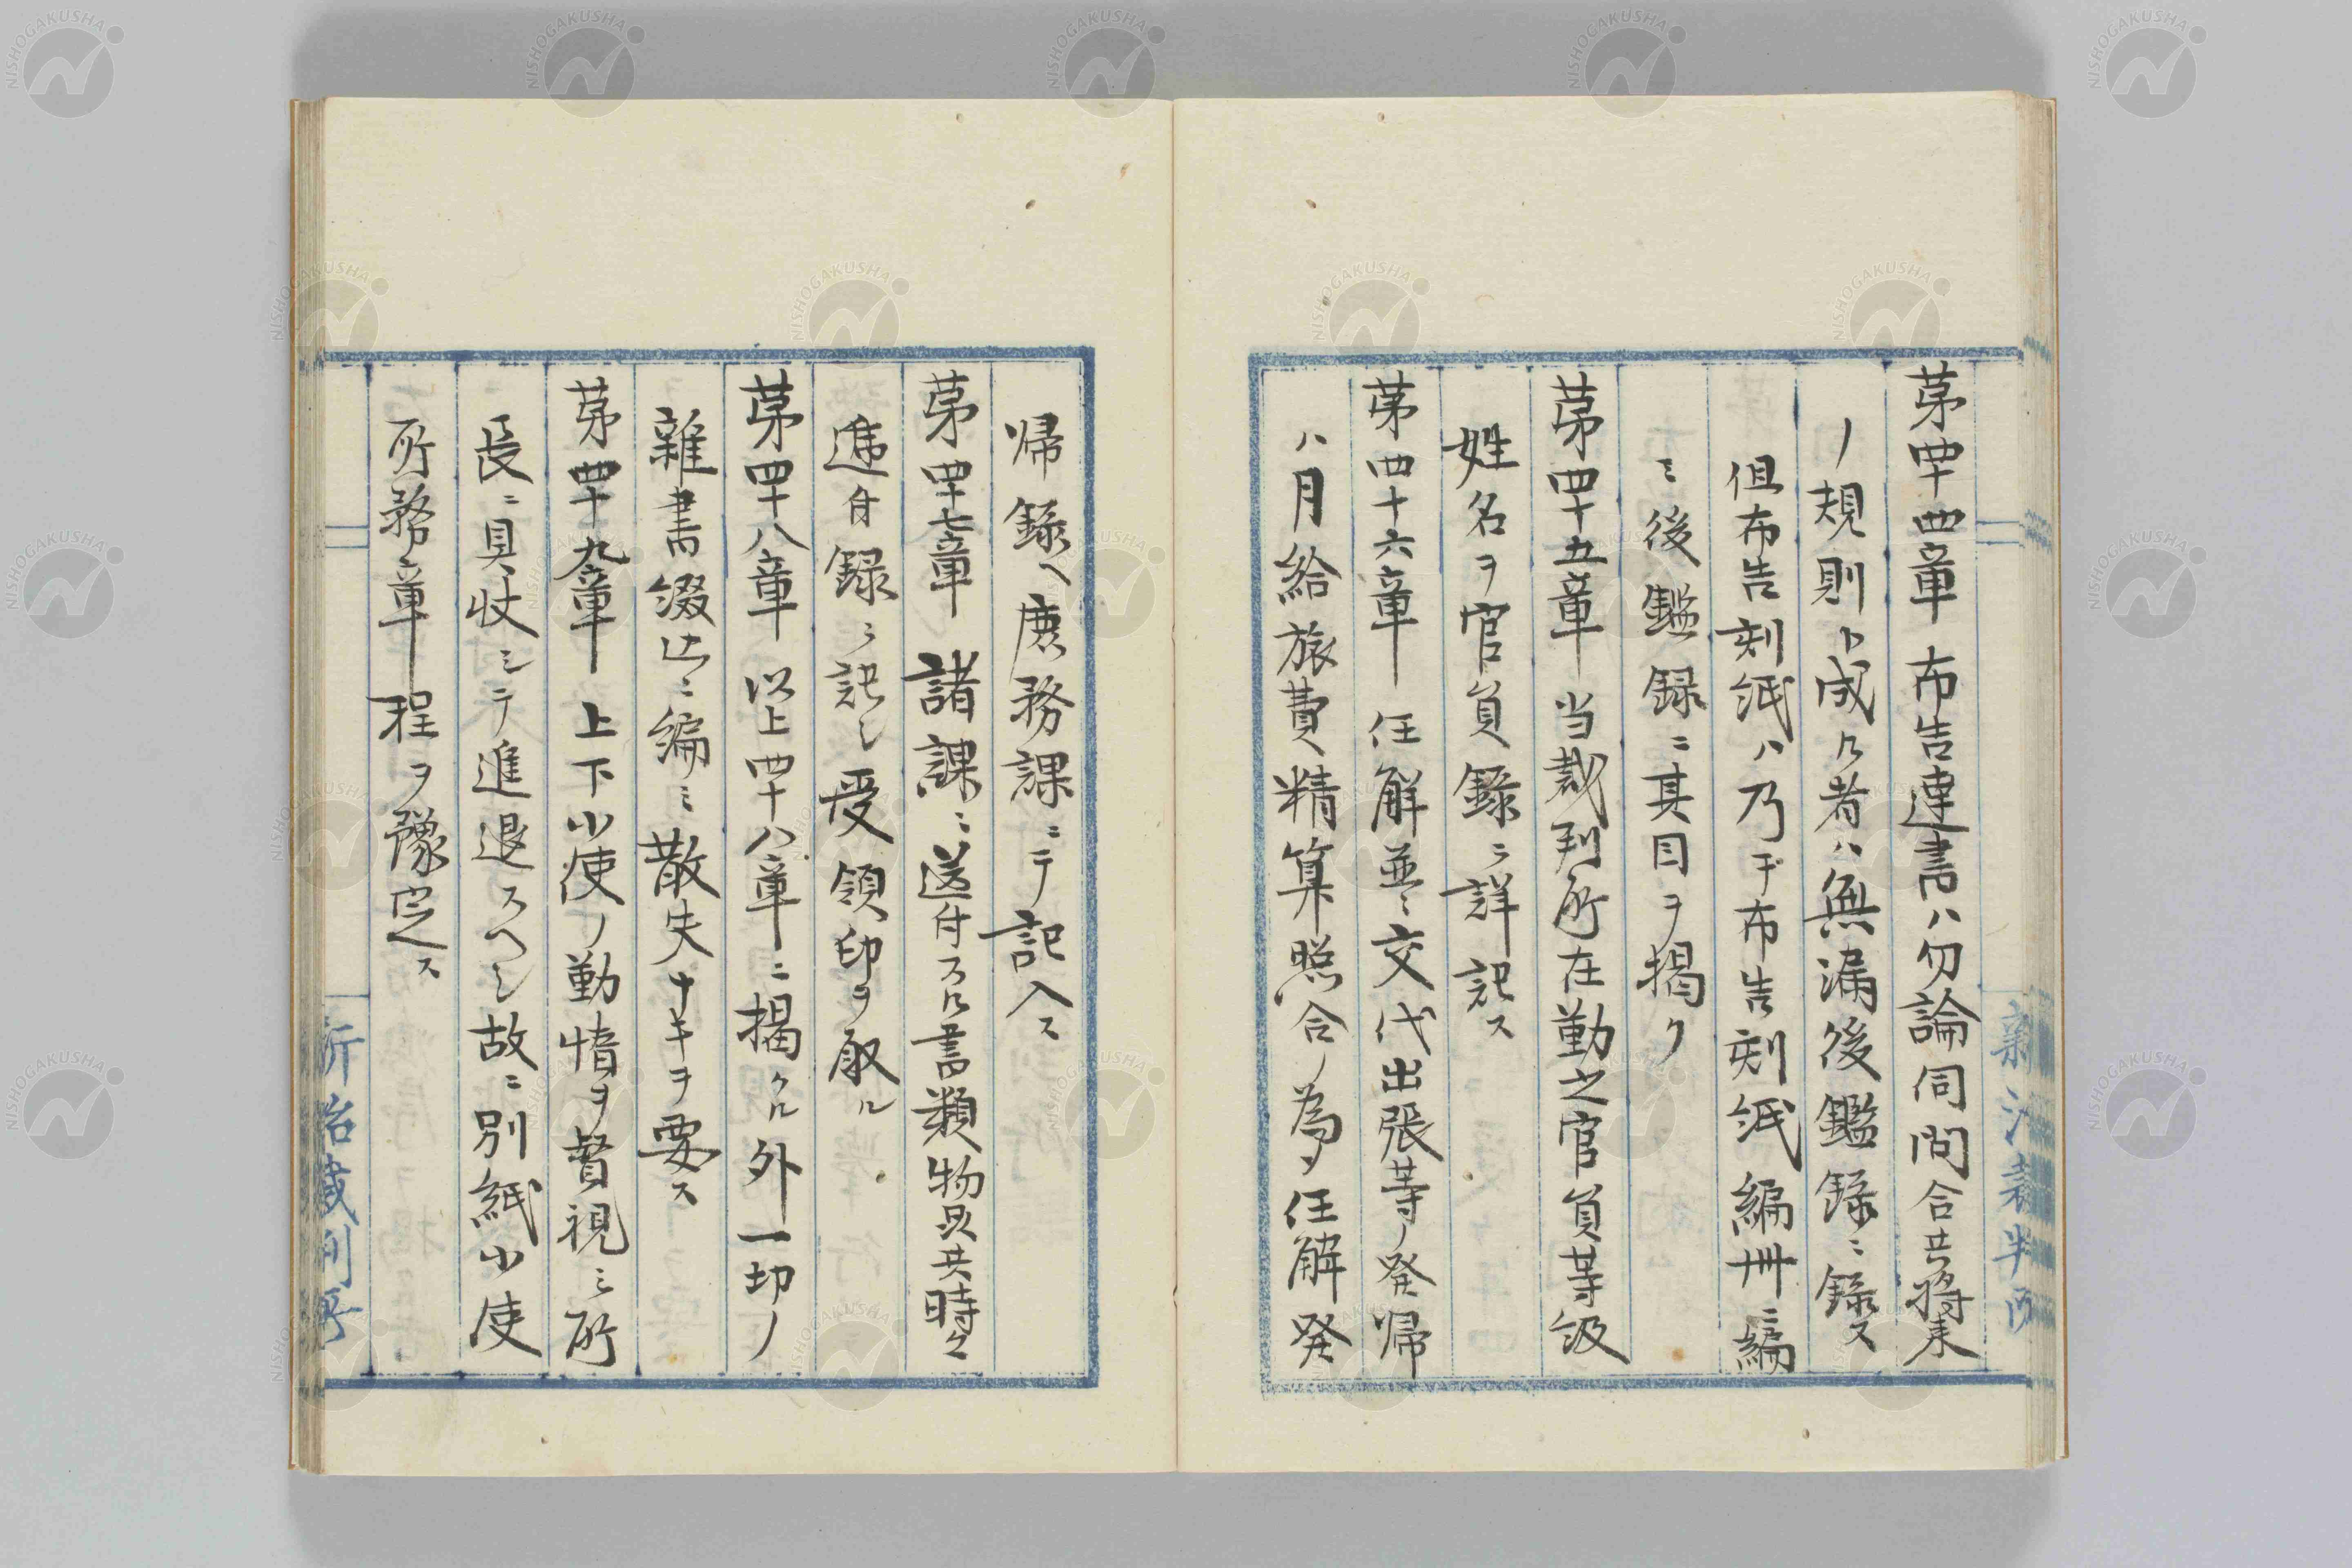 第四十四章 布告達書ハ勿論伺問合共将来
ノ規則ト成ル者ハ無漏後鑑録ニ録ス
但布告刻紙ハ乃チ布告刻紙編冊ニ編
ミ後鑑録ニ其目ヲ掲ク
第四十五章 当裁判所在勤之官員等級
姓名ヲ官員録ニ詳記ス
第四十六章 任解並ニ交代出張等ノ発帰
ハ月給旅費精算照合ノ為メ任解発
帰録ヘ庶務課ニテ記入ス
第四十七章 諸課ニ送付スル書類物品共時々
逓付録ニ記シ受領印ヲ取ル
第四十八章 以上四十八章ニ掲クル外一切ノ
雑書綴込ニ編ミ散失ナキヲ要ス
第四十九章 上下小使ノ勤惰ヲ督視シ所
長ニ具状シテ進退スヘシ故ニ別紙小使
所務章程ヲ豫定ス
新治裁判所
NISHOGAKUSHA